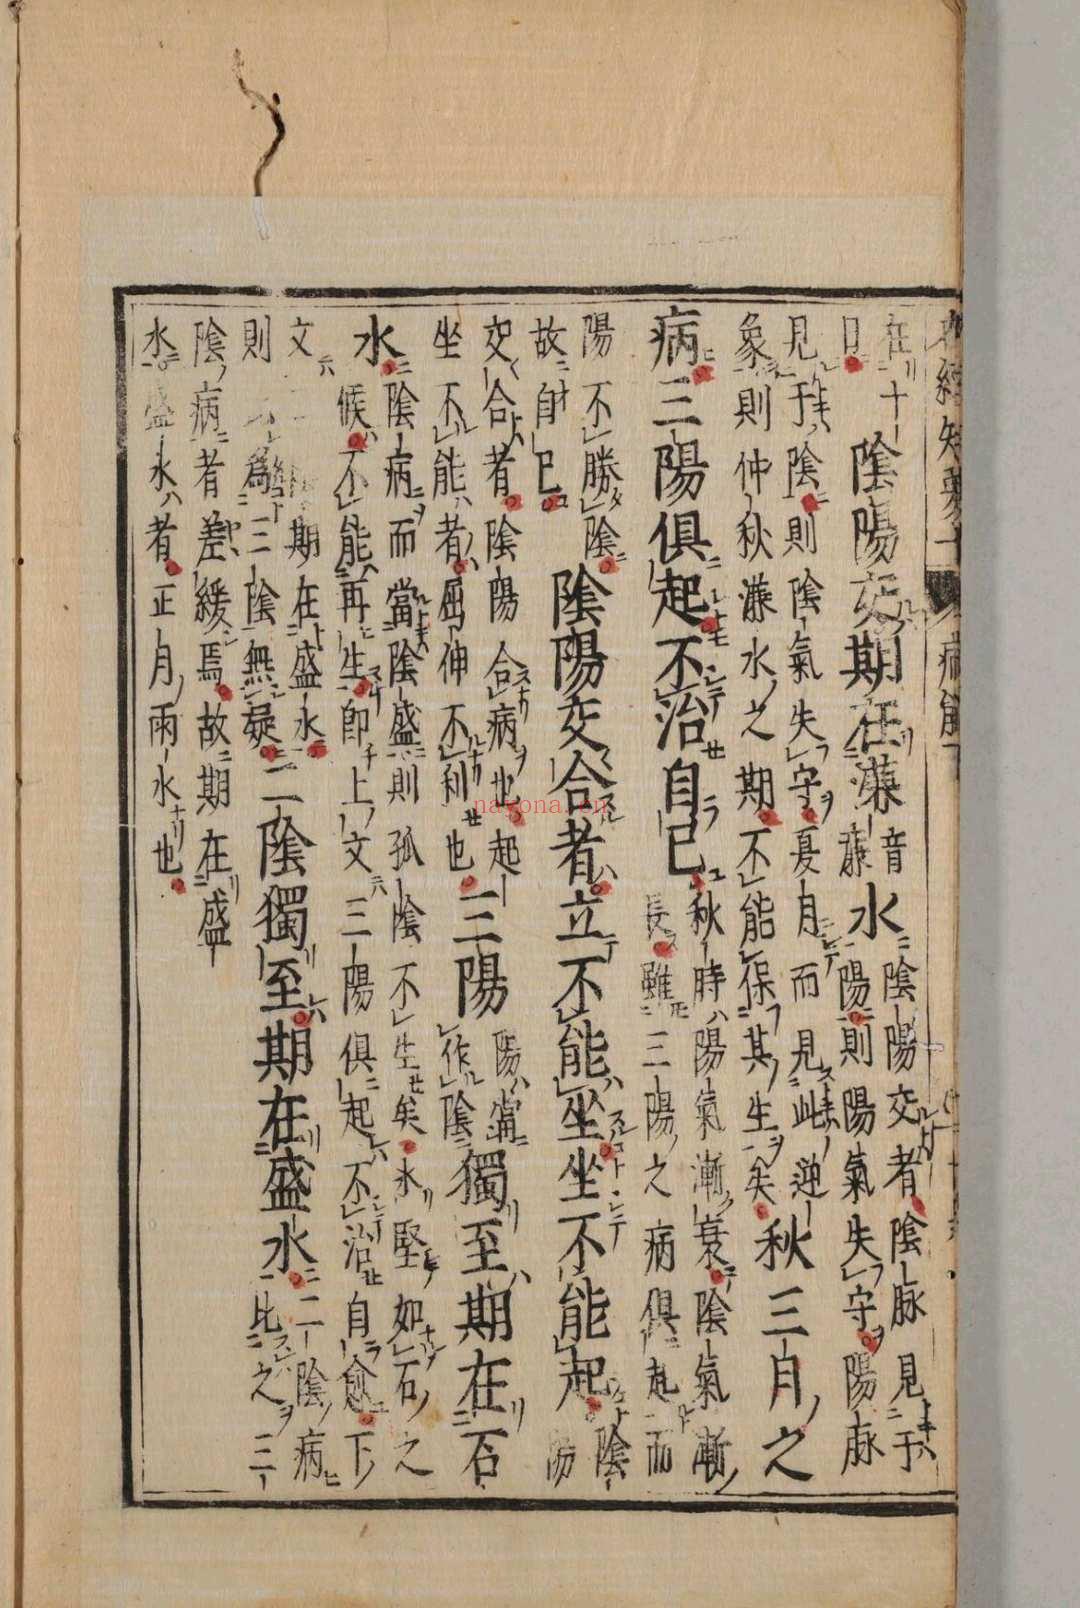 在十
日
陰陽交期在溓
音
廉
水
陰陽交者陰脉見于
陽則陽氣失守陽脉
見于陰則陰氣失守夏月而見此逆
象則仲秋溓水之期不能保其生矣
秋三月之
病三陽俱起不治自已
秋時陽氣漸衰陰氣漸
長雖三陽之病俱起而
陽不勝陰
故自已
陰陽交合者立不能坐坐不能起
陰
陽
交合者陰陽合病也起
坐不能者屈伸不利也
三陽
陽當
作陰
獨至期在石
水
陰病而當陰盛則孤陰不生矣水堅如石之
候不能再生即上文三陽俱起不治自愈下
文期在盛水
則為三陰無疑
二陰獨至期在盛水
二陰病
比之三
陰病者差緩焉故期在盛
水盛水者正月雨水也
nayona.cn